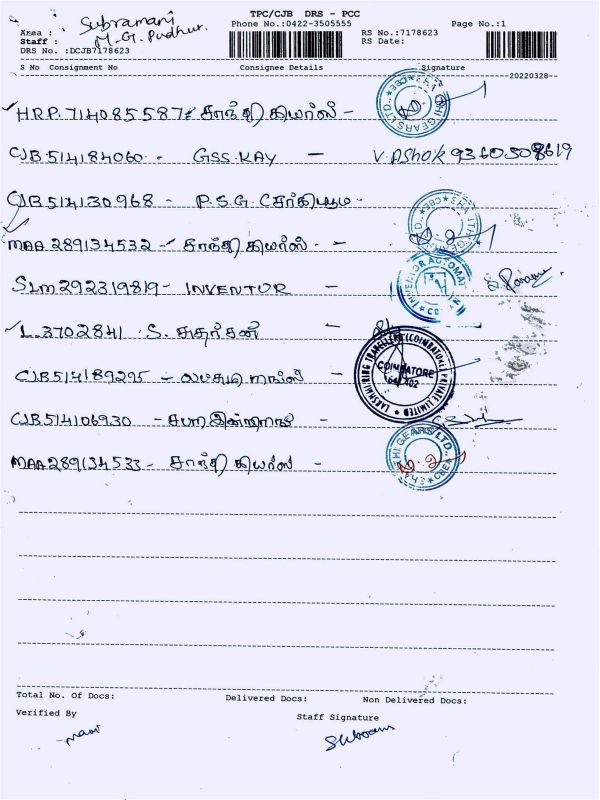 TPC/CJB DRS - PCC
Area : Subramani Phone No.:0422-3505555 RS No.:7178623 Page No.:1
Staff : M.G. Pudhur. RS Date:
DRS No. :DCJB7178623
S No Consignment No Consignee Details Signature
20220328
HRP.714085587 சாந்தி கியர்ஸ் -
CJB.514184060 - GSS.KAY - V.ASHOK 9360508619
CJB514130968 - P.S.G.
MAA 289134532 - சாந்தி கியர்ஸ் -
SLM292319819 - INVENTOR -
L.3702841 . S. சுதர்சன் -
CJB514189295 - லட்சுமி ரிங்ஸ் -
COIMBATORE
641 402
LAKSHMI RING TRAVELLERS (COIMBATORE) PRIVATE LIMITED
CJB514106930 -
MAA 289134533 - சாந்தி கியர்ஸ் -
Total No. Of Docs: Delivered Docs: Non Delivered Docs:
Verified By Staff Signature